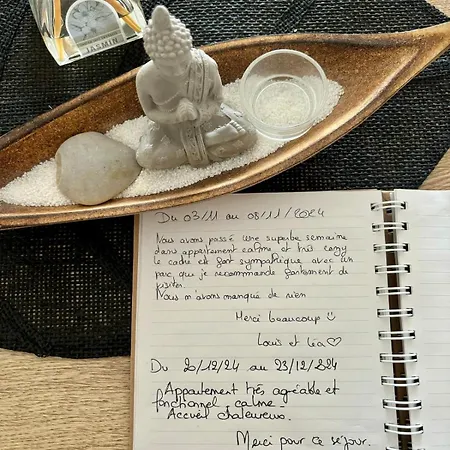 JASMIN
Du 03/11 au 08/11/2024
Nous avons passé une superbe semaine
dans appartement calme et très cozy
le cadre est fort sympathique avec un
parc, que je recommande fortement de
visiter.
Nous n'avons manqué de rien
Merci beaucoup ☺
Louis et Léa ♡
Du 20/12/24 au 23/12/2024
Appartement très agréable et
fonctionnel, calme.
Accueil chaleureux.
Merci pour ce séjour.